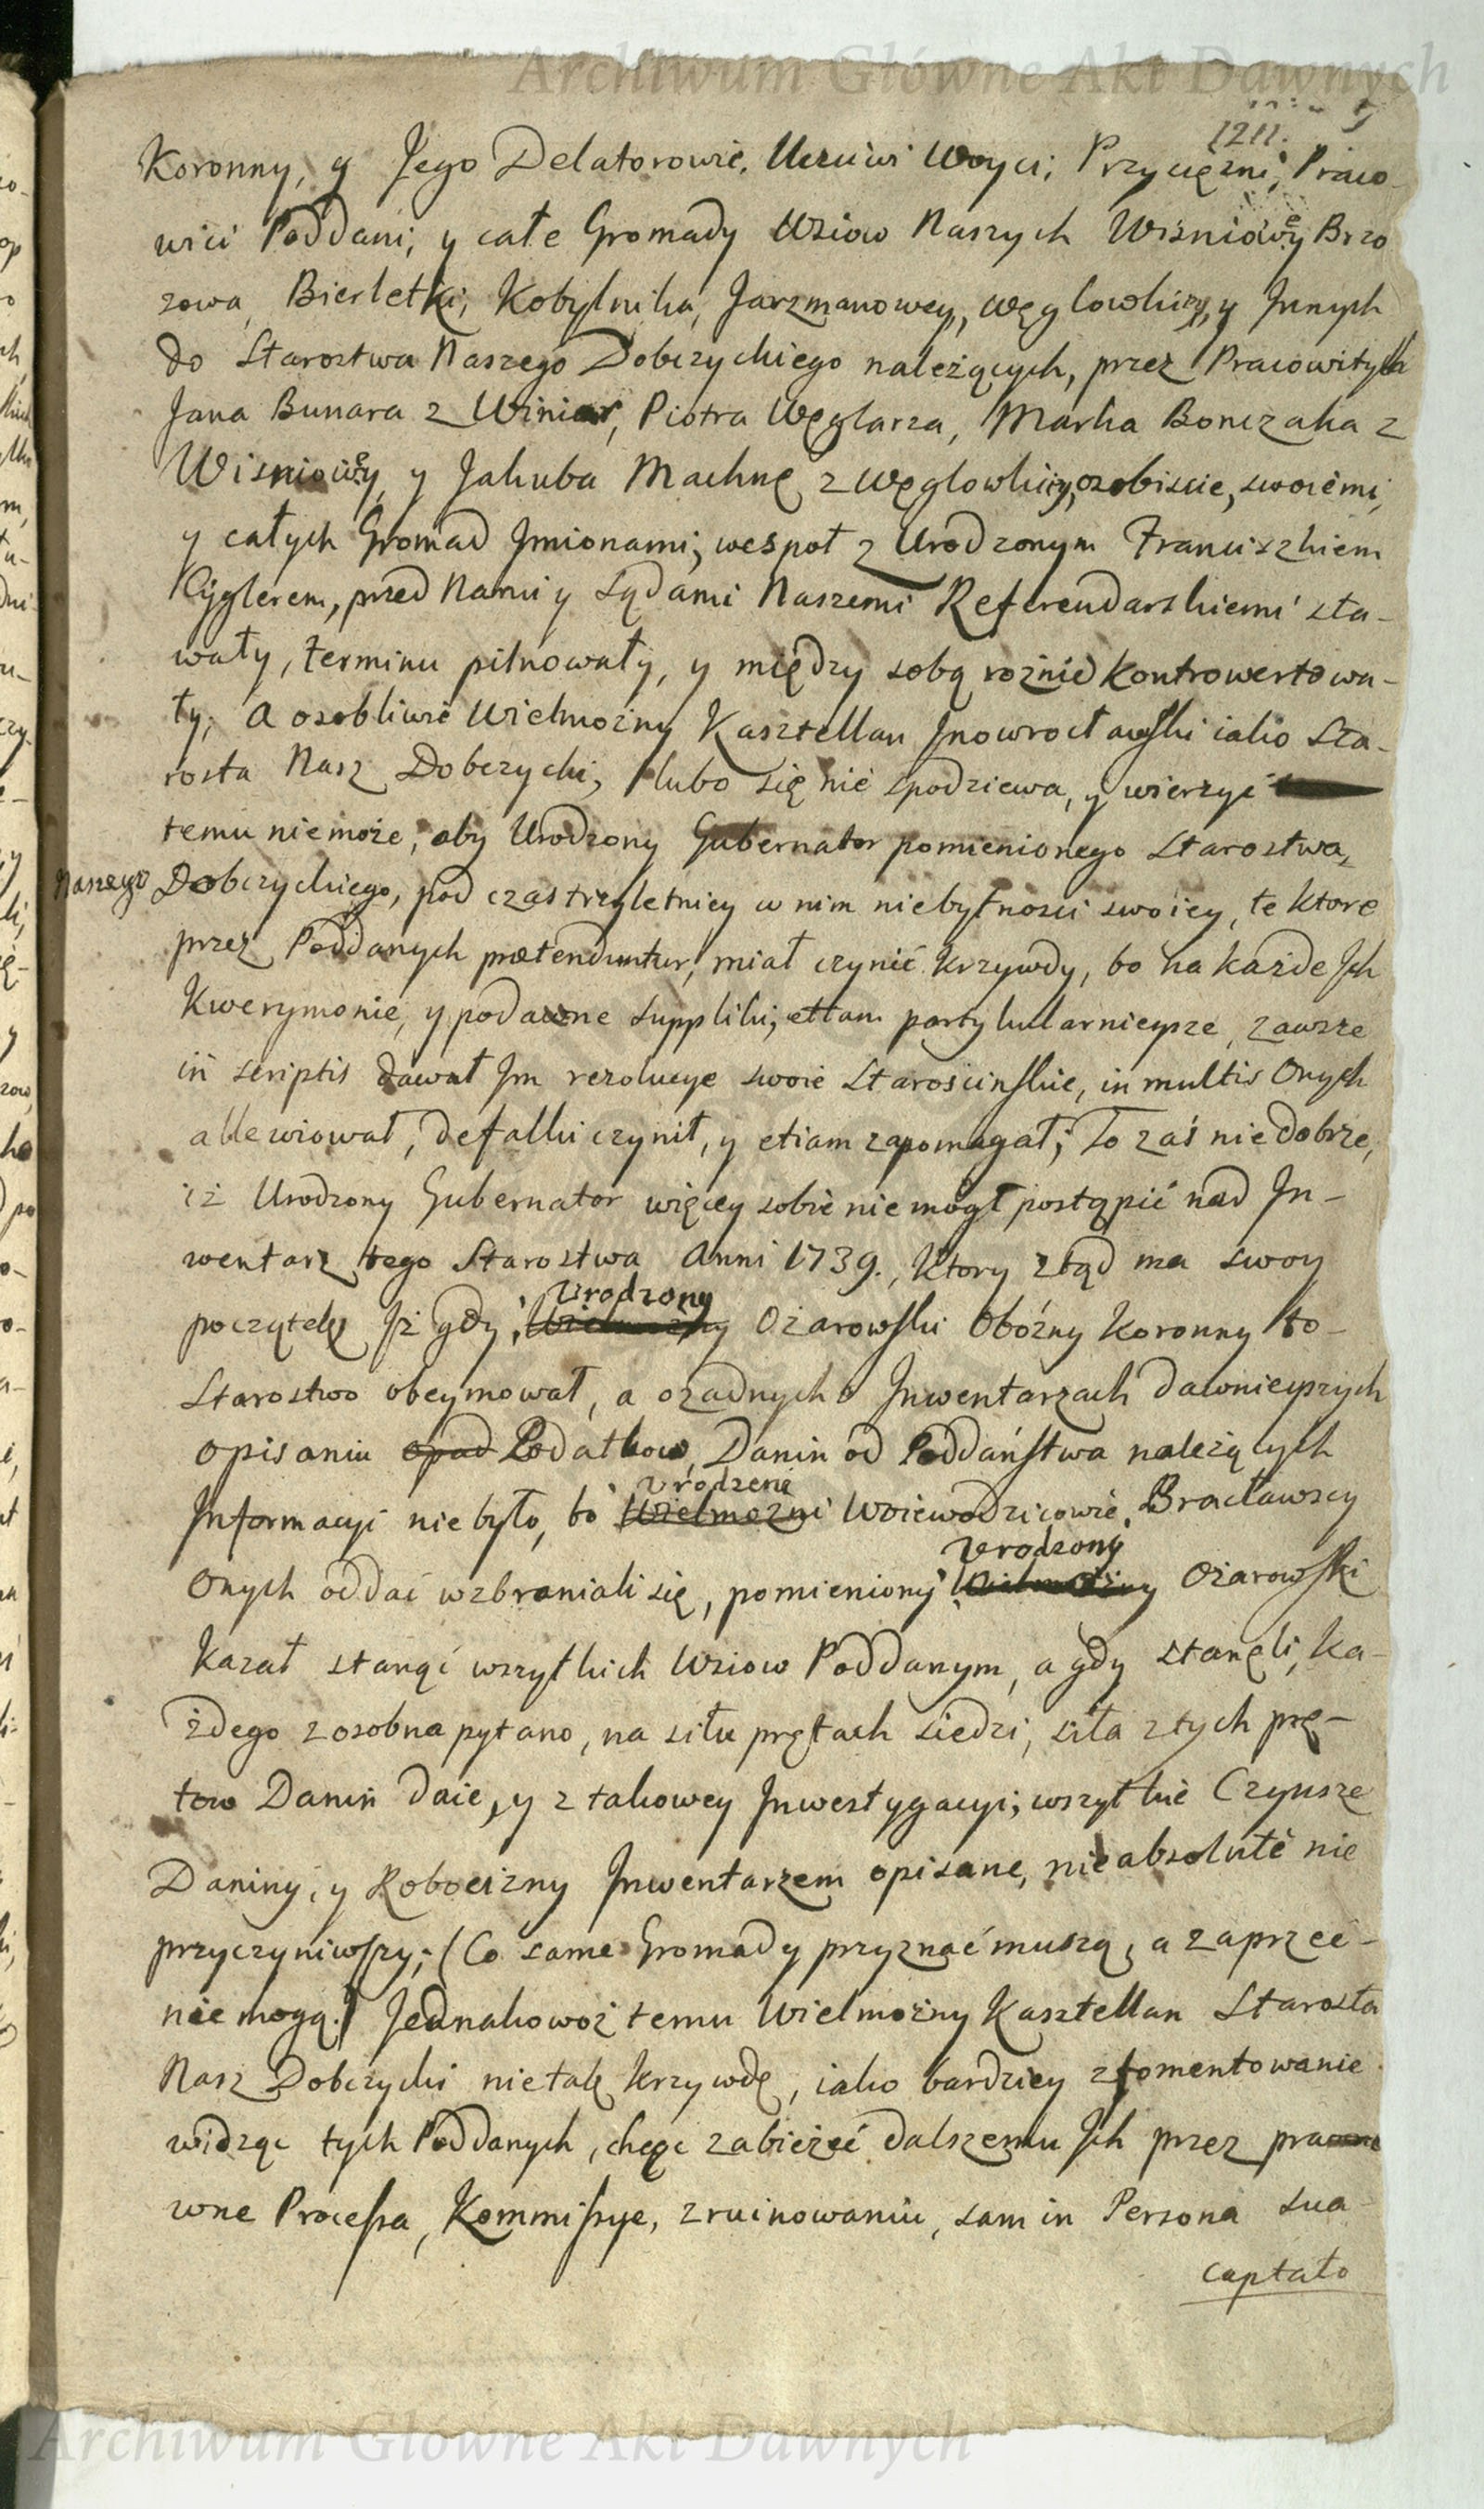 Archiwum Główne Akt Dawnych
1211. 5
Koronny, y Jego Delatorowie. Uczciwi Woyci, Przysięzni, Praco-
wici Poddani, y całe Gromady Wsiow Naszych Wisniowey Brzo
zowa, Bierletki, Kobylnika, Jarzmanowey, Węglowki, y Innych
do Starostwa Naszego Dobczyckiego należących, przez Pracowitych
Jana Bunara z Winiar, Piotra Węglarza, Marka Bonczaka z
Wisniowey, y Jakuba Machnę z Węglowki, osobiscie, swoiemi,
y całych Gromad Jmionami, wespoł z Urodzonym Franciszkiem
Cyglerem, przed Nami y Sądami Naszemi Referendarskiemi sta-
wały, terminu pilnowały, y między sobą roznie kontrowertowa-
ły, A osobliwie Wielmożny Kasztellan Jnowrocławski iako Sta-
rosta Nasz Dobczycki, lubo się nie spodziewa, y wierzyć
temu niemoże, aby Urodzony Gubernator pomienionego Starostwa,
Naszego Dobczyckiego, pod czas trzyletniey w nim niebytnosci swoiey, te ktore
przez Poddanych prætenduntur, miał czynić Krzywdy, bo na każde Jch
Kwerymonie, y podawne Suppliki, etiam partykularnieysze, zawsze
in scriptis dawał Jm rezolucye swoie Staroscinskie, in multis Onych
allewiował, defalki czynił, y etiam zapomagał; To zaś nie dobrze,
iż Urodzony Gubernator więcey sobie nie mogł postąpić nad Jn-
wentarz tego Starostwa Anni 1739., Ktory ztąd ma swoy
Urodzony
początek Jż gdy Wielmożny Ożarowski Obóżny Koronny to-
Starostwo obeymował, a o żadnych o Jnwentarzach dawnieyszych
opisaniu opad Podatkow, Danin od Poddaństwa należących
Urodzeni
Jnformacyi niebyło, bo Wielmożni Woiewodzicowie Bracławscy
Urodzony
Onych oddać wzbraniali się, pomieniony Wielmożny Ożarowski
Kazał stanąć wszytkich Wsiow Poddanym, a gdy stanęli, Ka-
żdego zosobna pytano, na siłu prętach siedzi, siła z tych prę-
tow Danin daie, y z takowey Jnwestygacyi, wszytkie Czynsze
Daniny, y Robocizny Jnwentarzem opisane, nic absolutè nie
przyczyniwszy; (Co same Gromady przyznać muszą, a zaprzeć-
nie mogą.) Jednakowoż temu Wielmożny Kasztellan Starosta
Nasz Dobczycki nietak krzywdę, iako bardziey zfomentowanie
widząc tych Poddanych, chcąc zabieżeć dalszemu Jch przez pra
wne Processa, Kommissye, zruinowaniu, sam in Persona sua
captato
Archiwum Główne Akt Dawnych